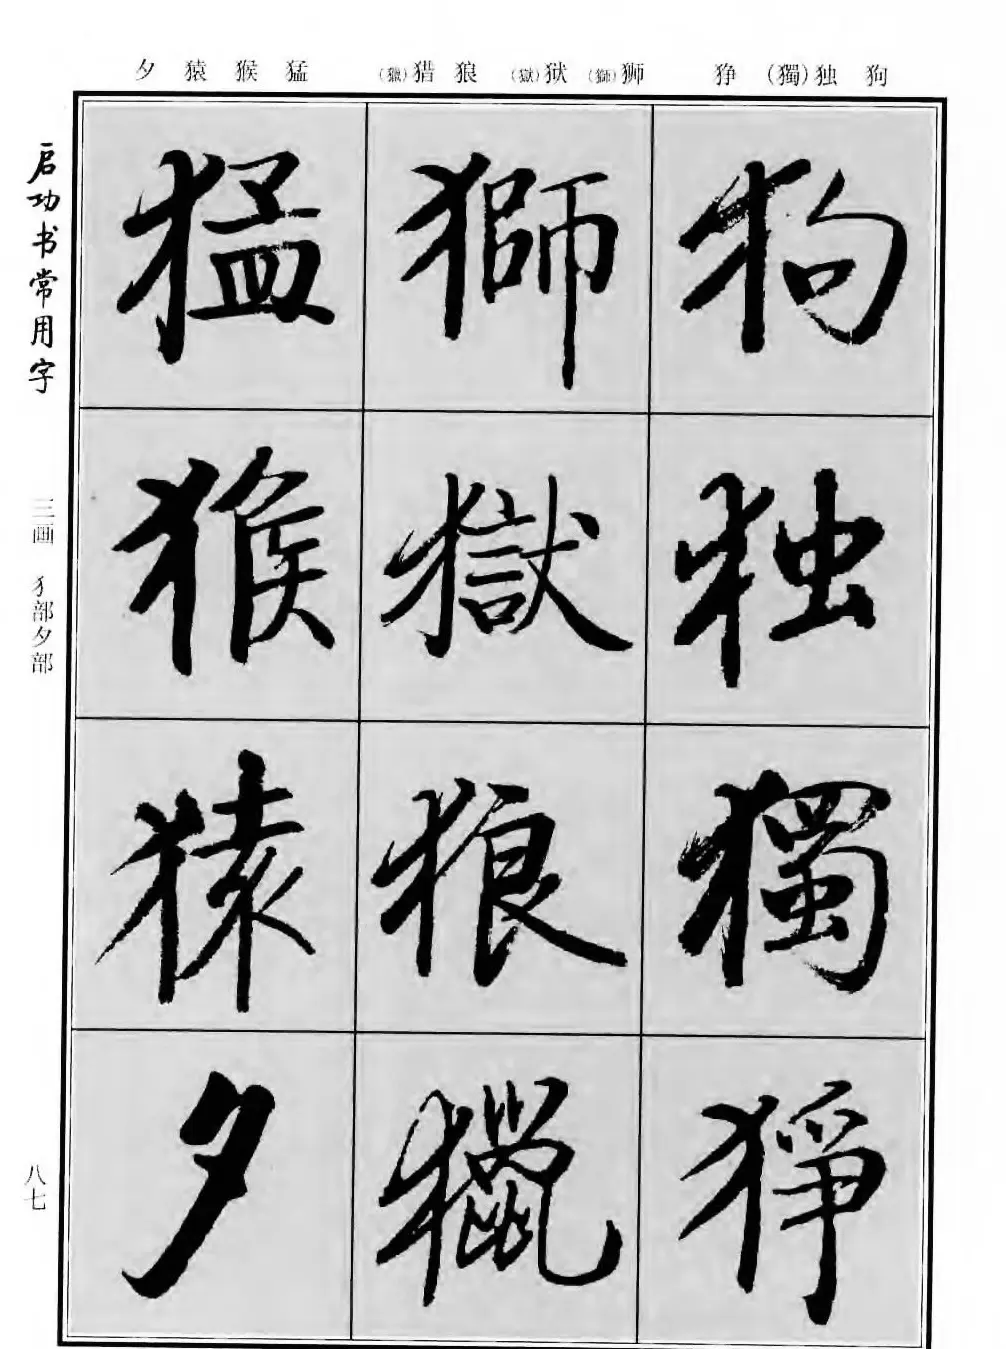 狗 独(獨) 狰 狮(獅) 狱(獄) 狼 猎(獵) 猛 猴 猿 夕
狗独獨猙
獅獄狼獵
猛猴猿夕
启功书常用字
三画 犭部夕部
八七